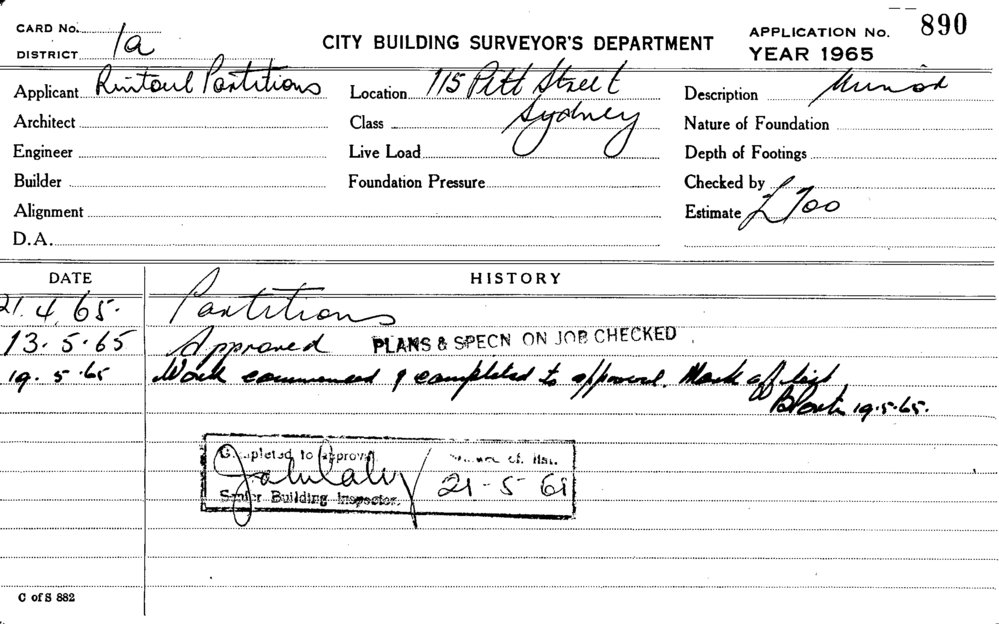 CARD No.
DISTRICT 1a
CITY BUILDING SURVEYOR'S DEPARTMENT
APPLICATION No. 890
YEAR 1965
Applicant Rintoul Partitions
Location 115 Pitt Street
Sydney
Description
Architect
Class
Nature of Foundation
Engineer
Live Load
Depth of Footings
Builder
Foundation Pressure
Checked by
Alignment
Estimate £700
D.A.
DATE HISTORY
21.4.65. Partitions
13.5.65 Approved PLANS & SPECN ON JOB CHECKED
19.5.65 Work commenced & completed to approval. Mark off list
19.5.65.
Completed to approval
21-5-65
Senior Building Inspector.
C of S 882